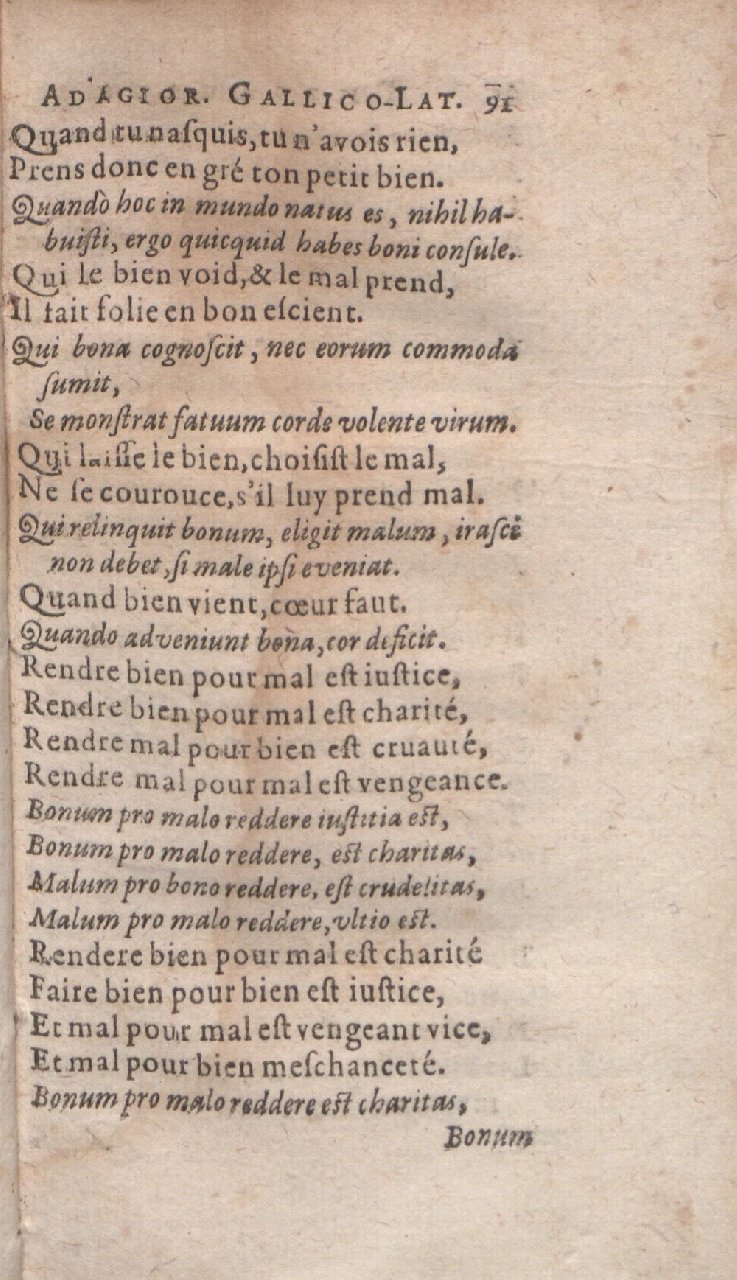 ADAGIOR. GALLICO-LAT. 91
Quand tu naſquis, tu n'avois rien,
Prens donc en gré ton petit bien.
Quando hoc in mundo natus es, nihil ha-
buiſti, ergo quicquid habes boni conſule.
Qui le bien void, & le mal prend,
Il fait folie en bon eſcient.
Qui bona cognoſcit, nec eorum commoda
ſumit,
Se monſtrat fatuum corde volente virum.
Qui laiſſe le bien, choiſiſt le mal,
Ne ſe courouce, s'il luy prend mal.
Qui relinquit bonum, eligit malum, iraſci
non debet, ſi male ipſi eveniat.
Quand bien vient, cœur faut.
Quando adveniunt bona, cor deficit.
Rendre bien pour mal eſt iuſtice,
Rendre bien pour mal eſt charité,
Rendre mal pour bien eſt cruauté,
Rendre mal pour mal eſt vengeance.
Bonum pro malo reddere iuſtitia eſt,
Bonum pro malo reddere, eſt charitas,
Malum pro bono reddere, eſt crudelitas,
Malum pro malo reddere, vltio eſt.
Rendere bien pour mal eſt charité
Faire bien pour bien eſt iuſtice,
Et mal pour mal eſt vengeant vice,
Et mal pour bien meſchanceté.
Bonum pro malo reddere eſt charitas,
Bonum